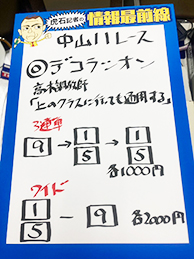 虎石記者の
情報最前線
中山11レース
◎デコラシオン
高木調教師
「上のクラスに行っても通用する」
3連単
9→1 5→1 5
各1000円
ワイド
1 5－9
各2000円